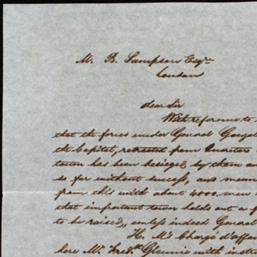 M. B. Sampson Esqre
London
dear Sir
With reference to
that the forces under General
the Capital, retreated from
town has been besieged by them
so far without success, and
from this with about 4000 men
that important town holds out a
to be raised, unless indeed General
H. M's Chargé d'affai
here Mr. Fredk. Glennie with instr